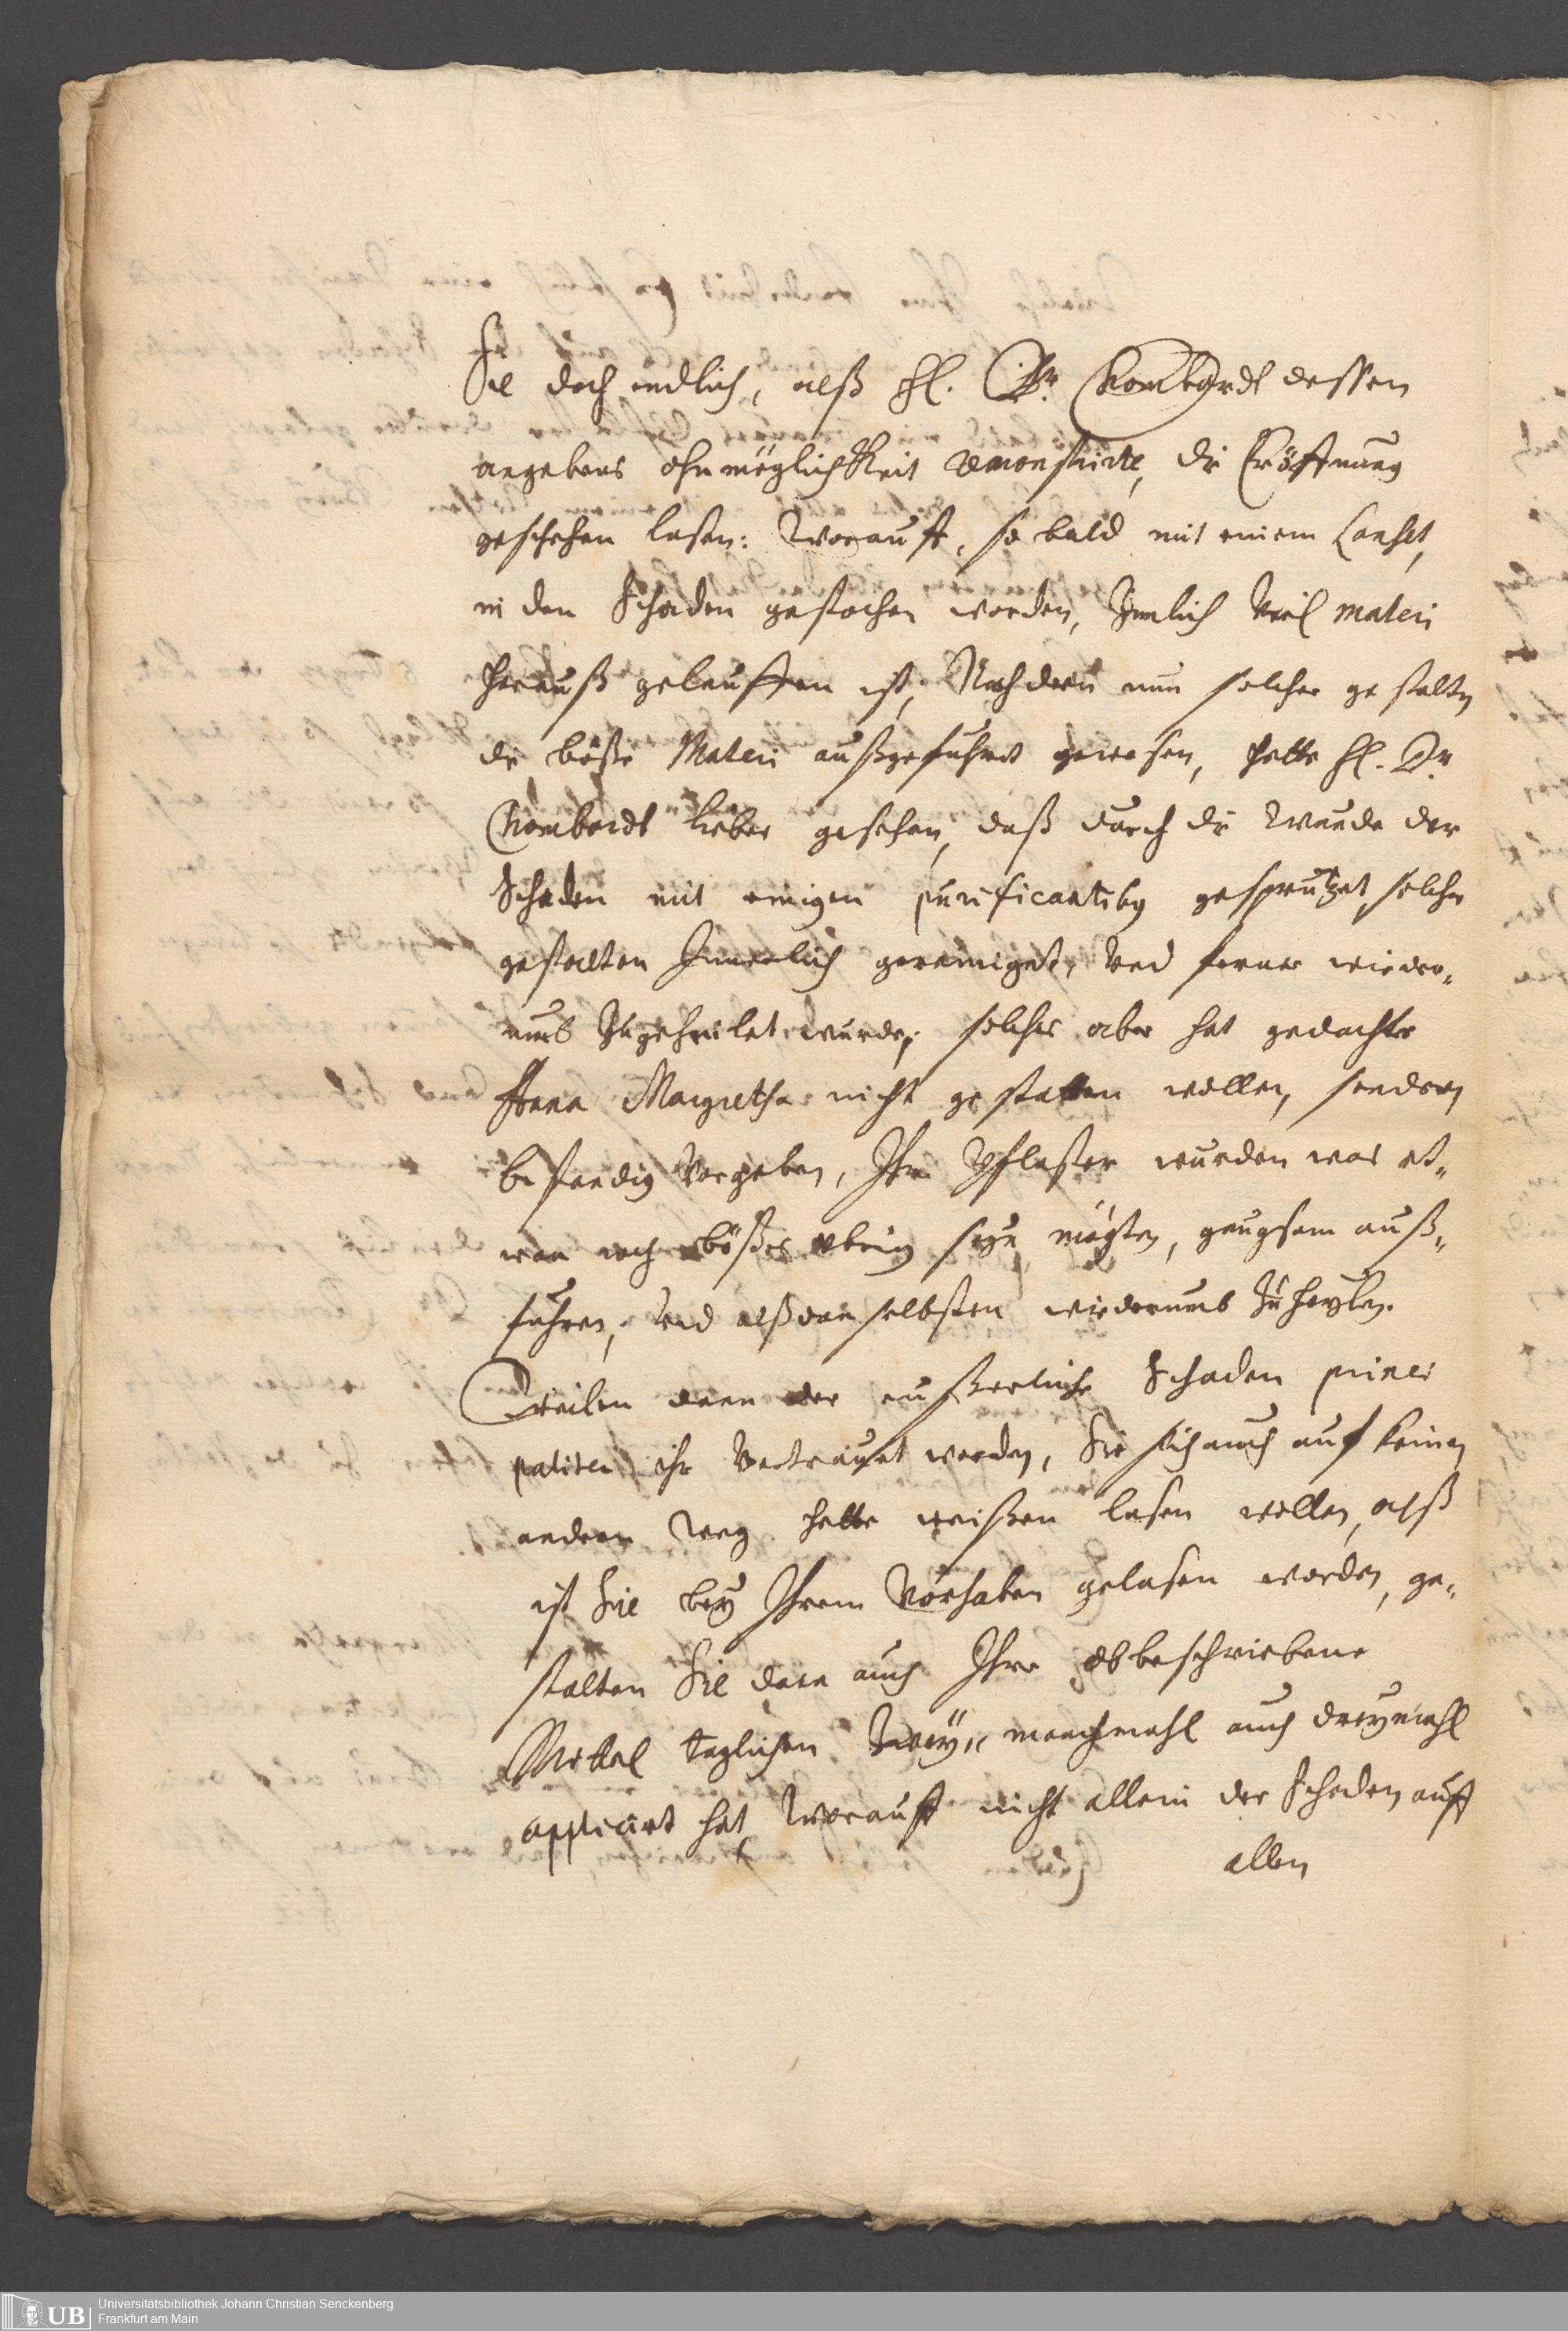 Sie doch endlich, alß H. Dr. Chombardt dessen
angebens ohnmöglichkeit remonstrirte, die Eröffnung
geschehen laßen: Worauff, so bald mit einem Lanset,
in den Schaden gestochen worden, Zimlich Viel materi
herauß gelauffen ist, Nachdem nun solcher gestalten
die böße Materi außgeführet gewesen, hette H. Dr.
Chombardt lieber gesehen, daß durch die Wunde der
Schaden mit einigen purificantibus gesprützet, solcher
gestalten Innerlich gereiniget, Und ferner wieder„
umb Zugeheilet wurde, solches aber hat gedachte
Anna Margretha nicht gestatten wollen, sondern
bestandig Vorgeben, Ihre Pflaster wurden was et„
wan noch bößes ubrig seyn mögten, gnugsam auß„
fuhren, Und alßdan selbsten wiederumb Zu heylen.
Weilen dann der eußerliche Schaden princi
paliter ihr Vertrauet worden, Sie sich auch auf keinen
andern Weg hette weißen laßen wollen, alß
ist Sie bey Ihrem Vorhaben gelaßen worden, ge„
stalten Sie dann auch Ihre obbeschriebene
Mittel taglichen Zwey„ manchmahl auch dreymahl
applicirt hat, Worauff nicht allein der Schaden auff
allen
UB
Universitätsbibliothek Johann Christian Senckenberg
Frankfurt am Main